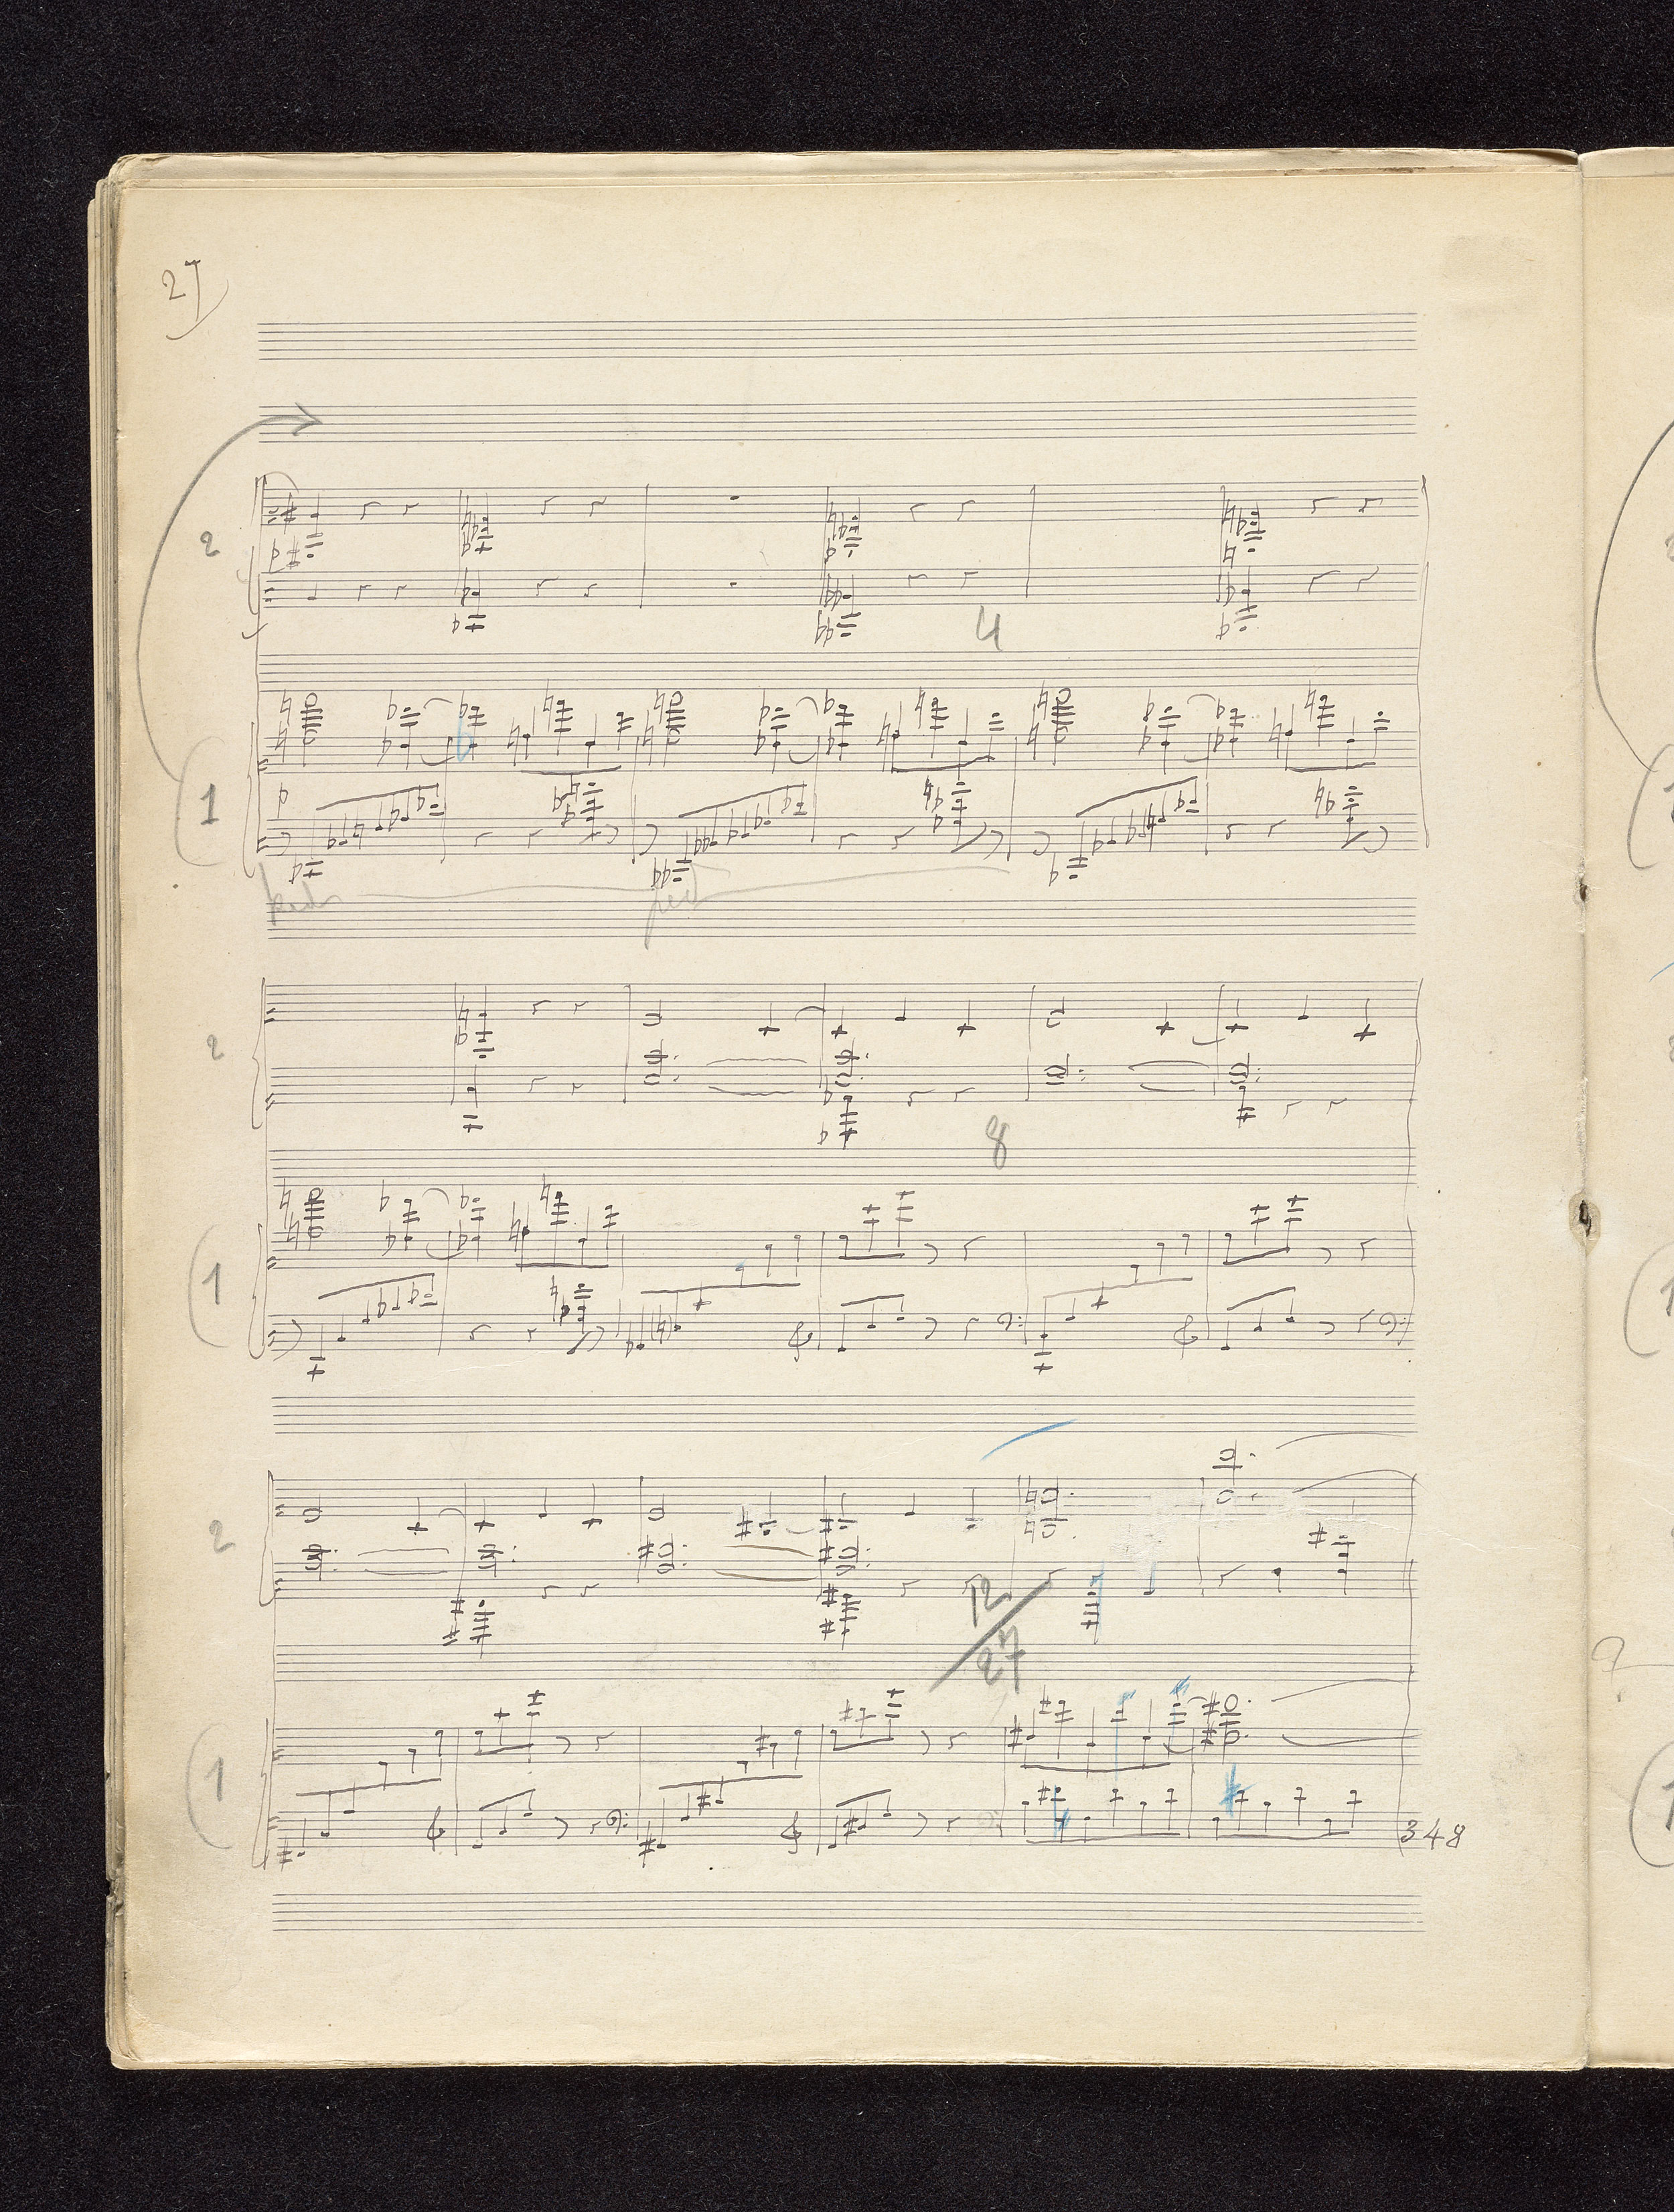 27
2
4
1
ped
ped
2
8
1
2
12
27
1
348